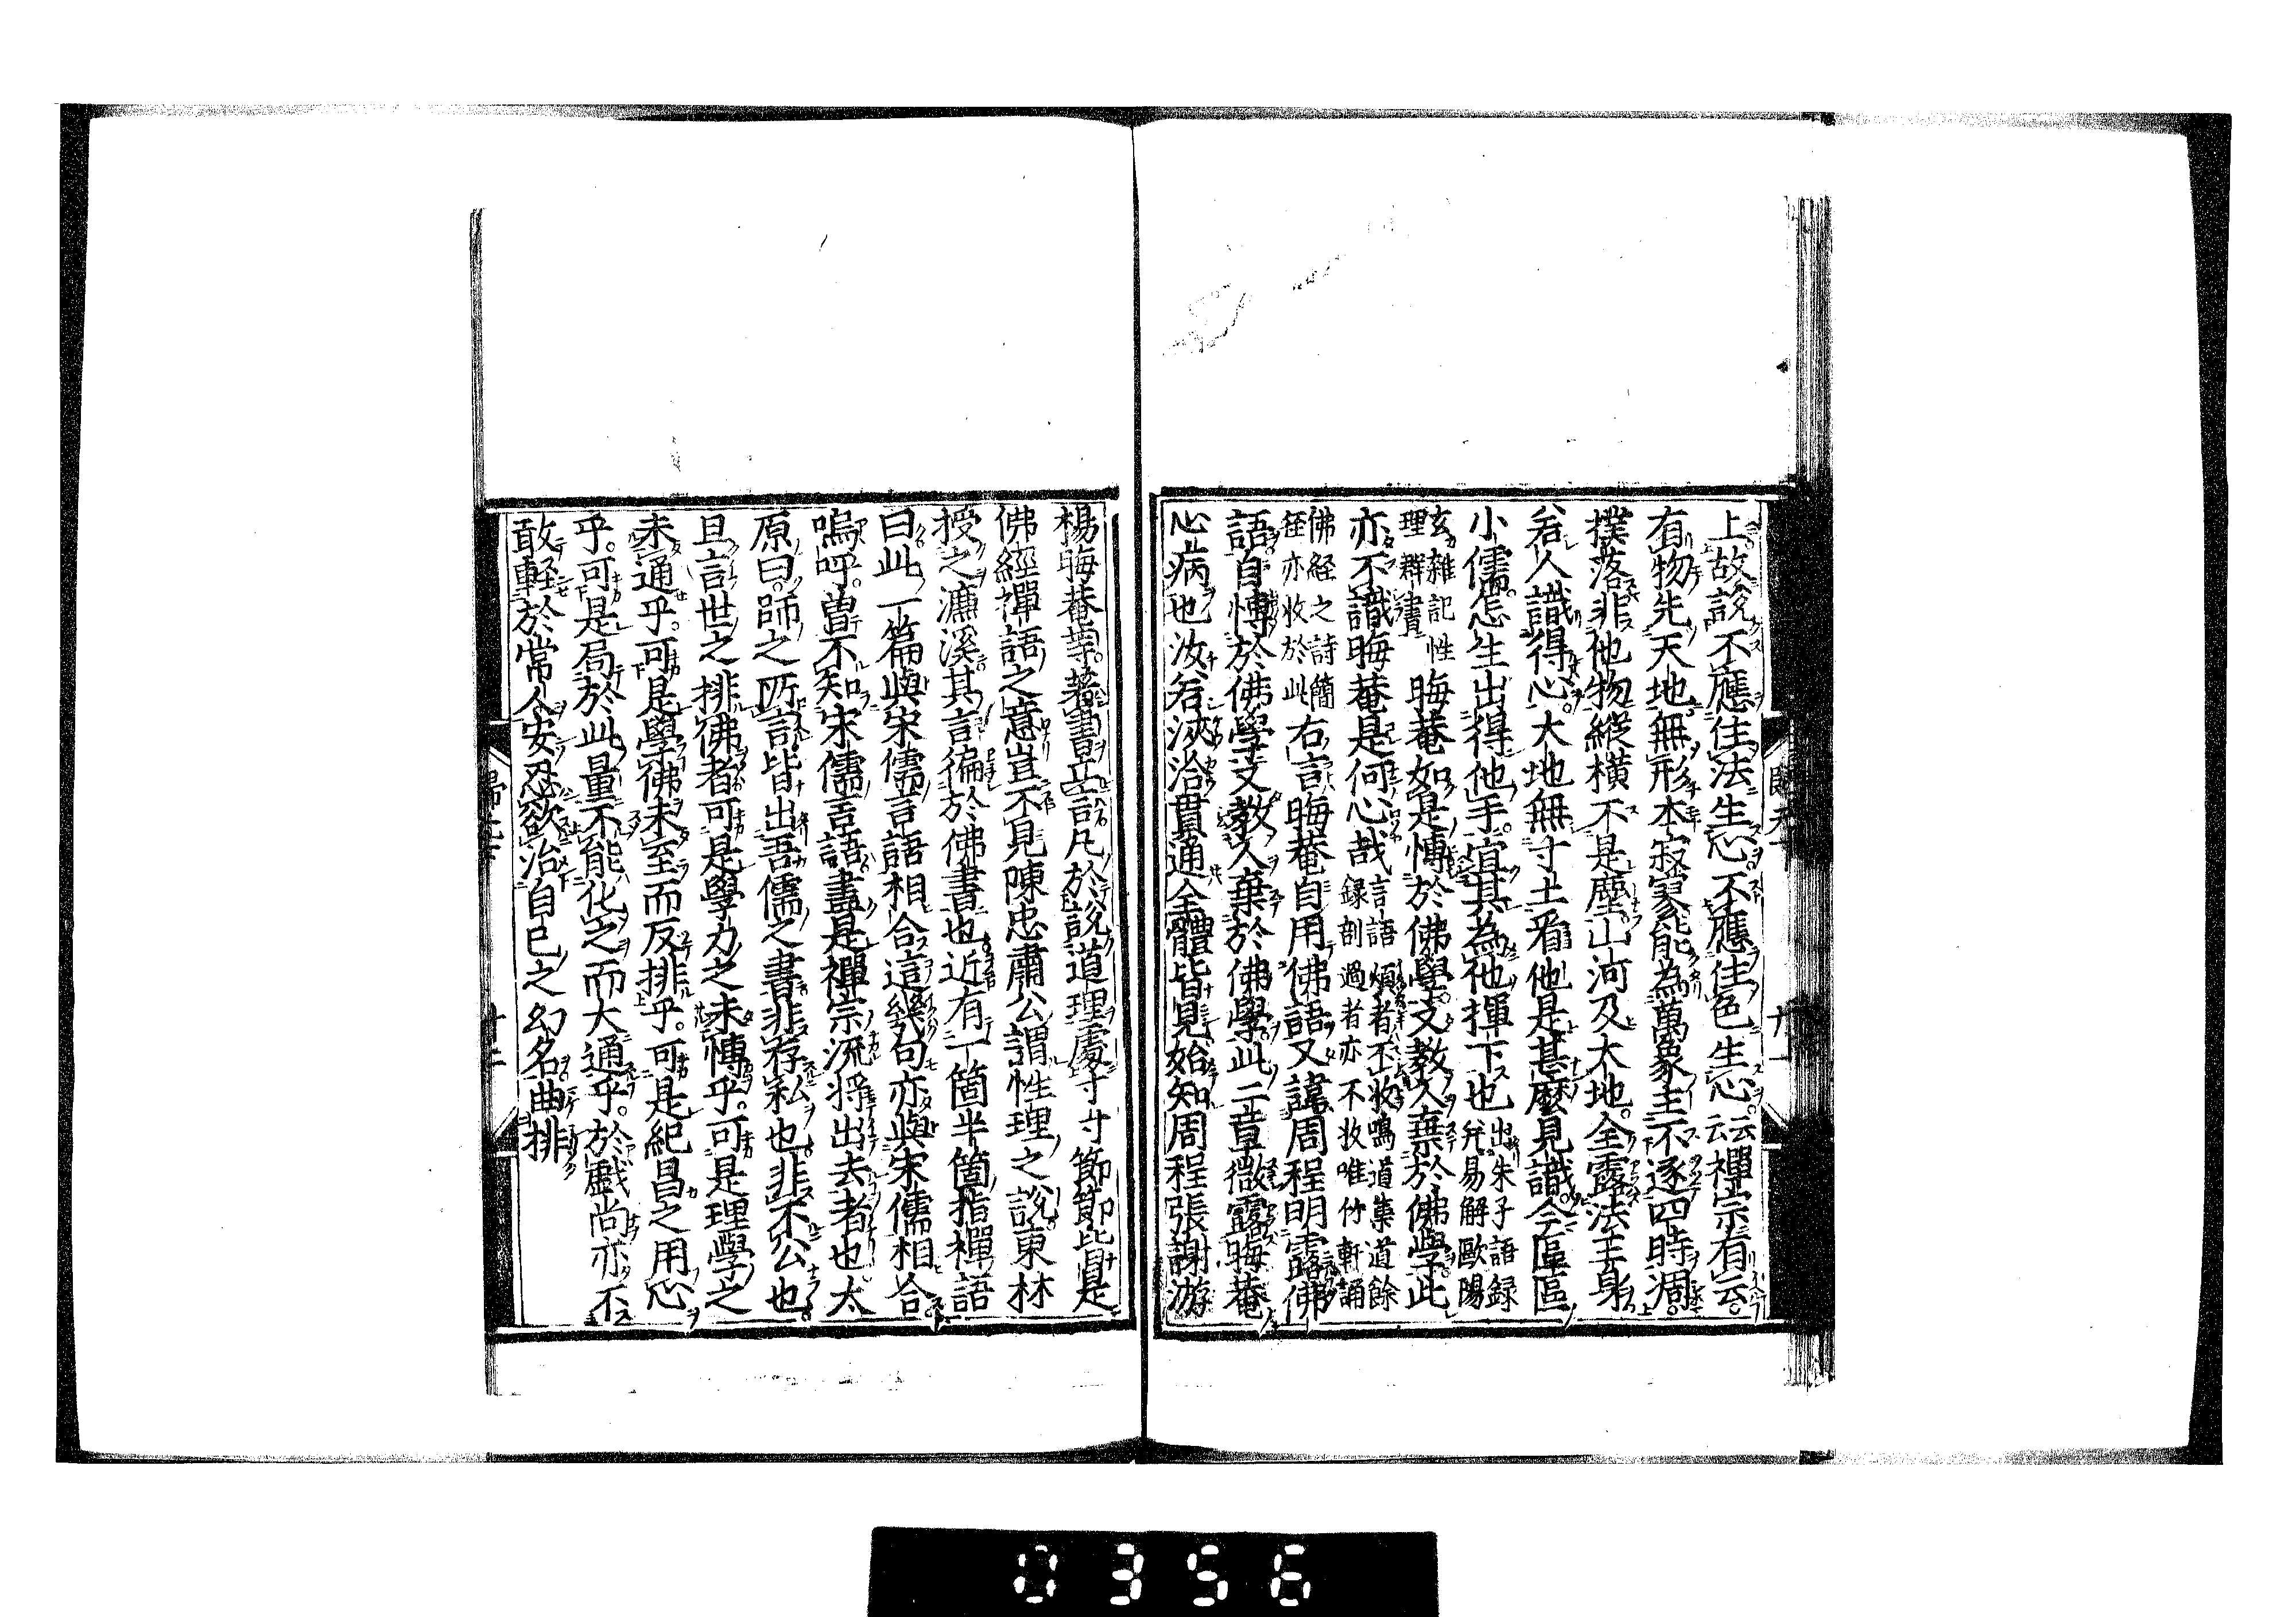 上故說不應住法生心不應住色生心云云禪宗有云
有物先天地無形本寂寥能為萬象主不逐四時凋
撲落非他物縱橫不是塵山河及大地全露法王身
若人識得心大地無寸土看他是甚麼見識今區區
小儒怎生出得他手宜其為他揮下也出朱子語録
弁易解歐陽
玄雜記性
理群書晦菴如是慱於佛學支教人棄於佛學此
亦不識晦菴是何心哉言語煩者不收鳴道集道餘
録剖過者亦不收唯竹軒誦
佛経之詩簡
徑亦收於此右言晦菴自用佛語又諱周程明露佛
語自慱於佛學支教人棄於佛學此二章微露晦菴
心病也汝若浹洽貫通全體皆見始知周程張謝游
楊晦菴等著書立言凡於說道理處寸寸節節皆是
佛經禪語之意豈不見陳忠肅公謂性理之說東林
授之濂溪其言徧於佛書也近有一箇半箇指禪語
曰此一篇與宋儒言語相合這幾句亦與宋儒相合
嗚呼曽不知宋儒言語盡是禪宗流將出去者也太
原曰師之所言皆出吾儒之書非存私也非不公也
且言世之排佛者可是學力之未慱乎可是理學之
未通乎可是學佛未至而反排乎可是紀昌之用心
乎可是局於此量不能化之而大通乎於戲尚亦不
敢軽於常人安忍欲治自已之幻名曲排
歸元
十二